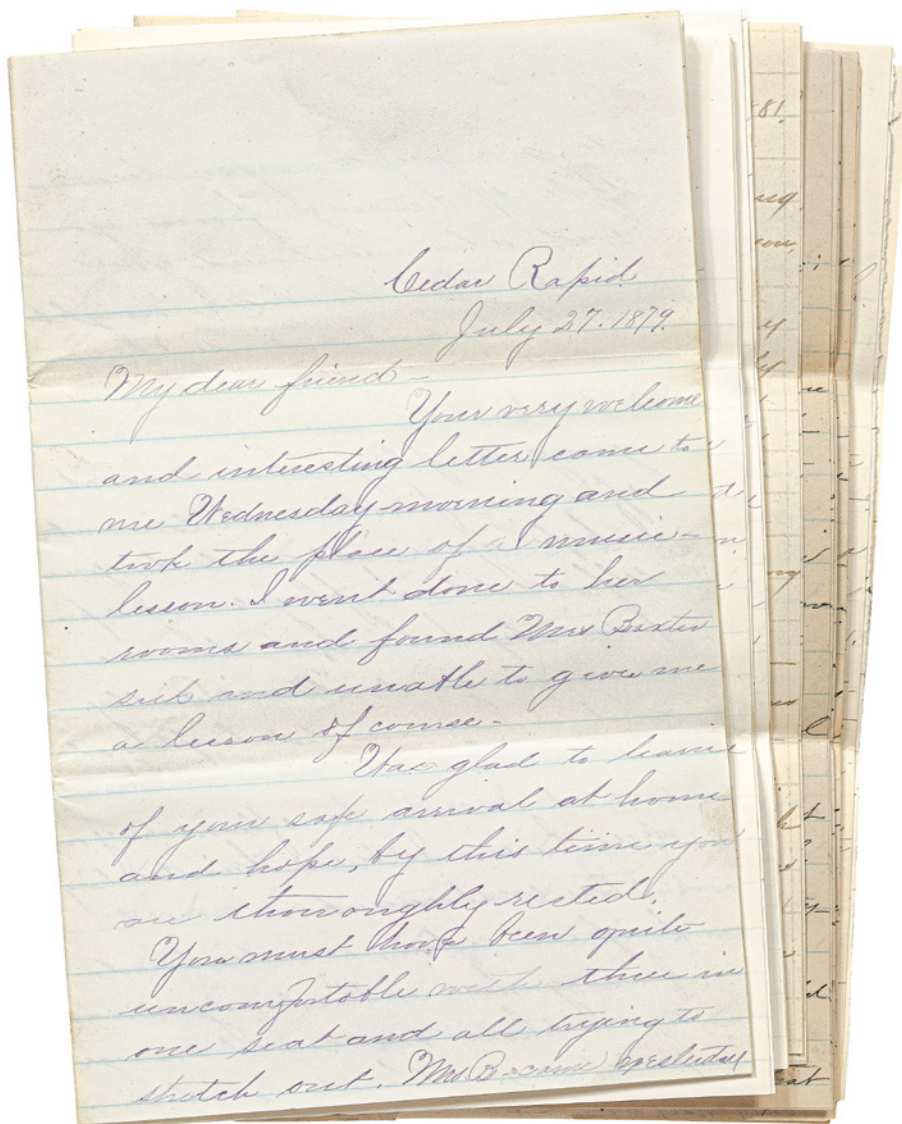 Cedar Rapid.
July 27. 1879.
My dear friend-
Your very welcome
and interesting letter came to
me Wednesday morning and
took the place of a music-
lesson. I went done to her
rooms and found Mrs Baxter
sick and unable to give me
a lesson of course-
Was glad to learn
of your safe arrival at home
and hope, by this time you
are thoroughly rested.
You must have been quite
uncomfortable with three in
one seat and all trying to
stretch out. Mr. B- came yesterday